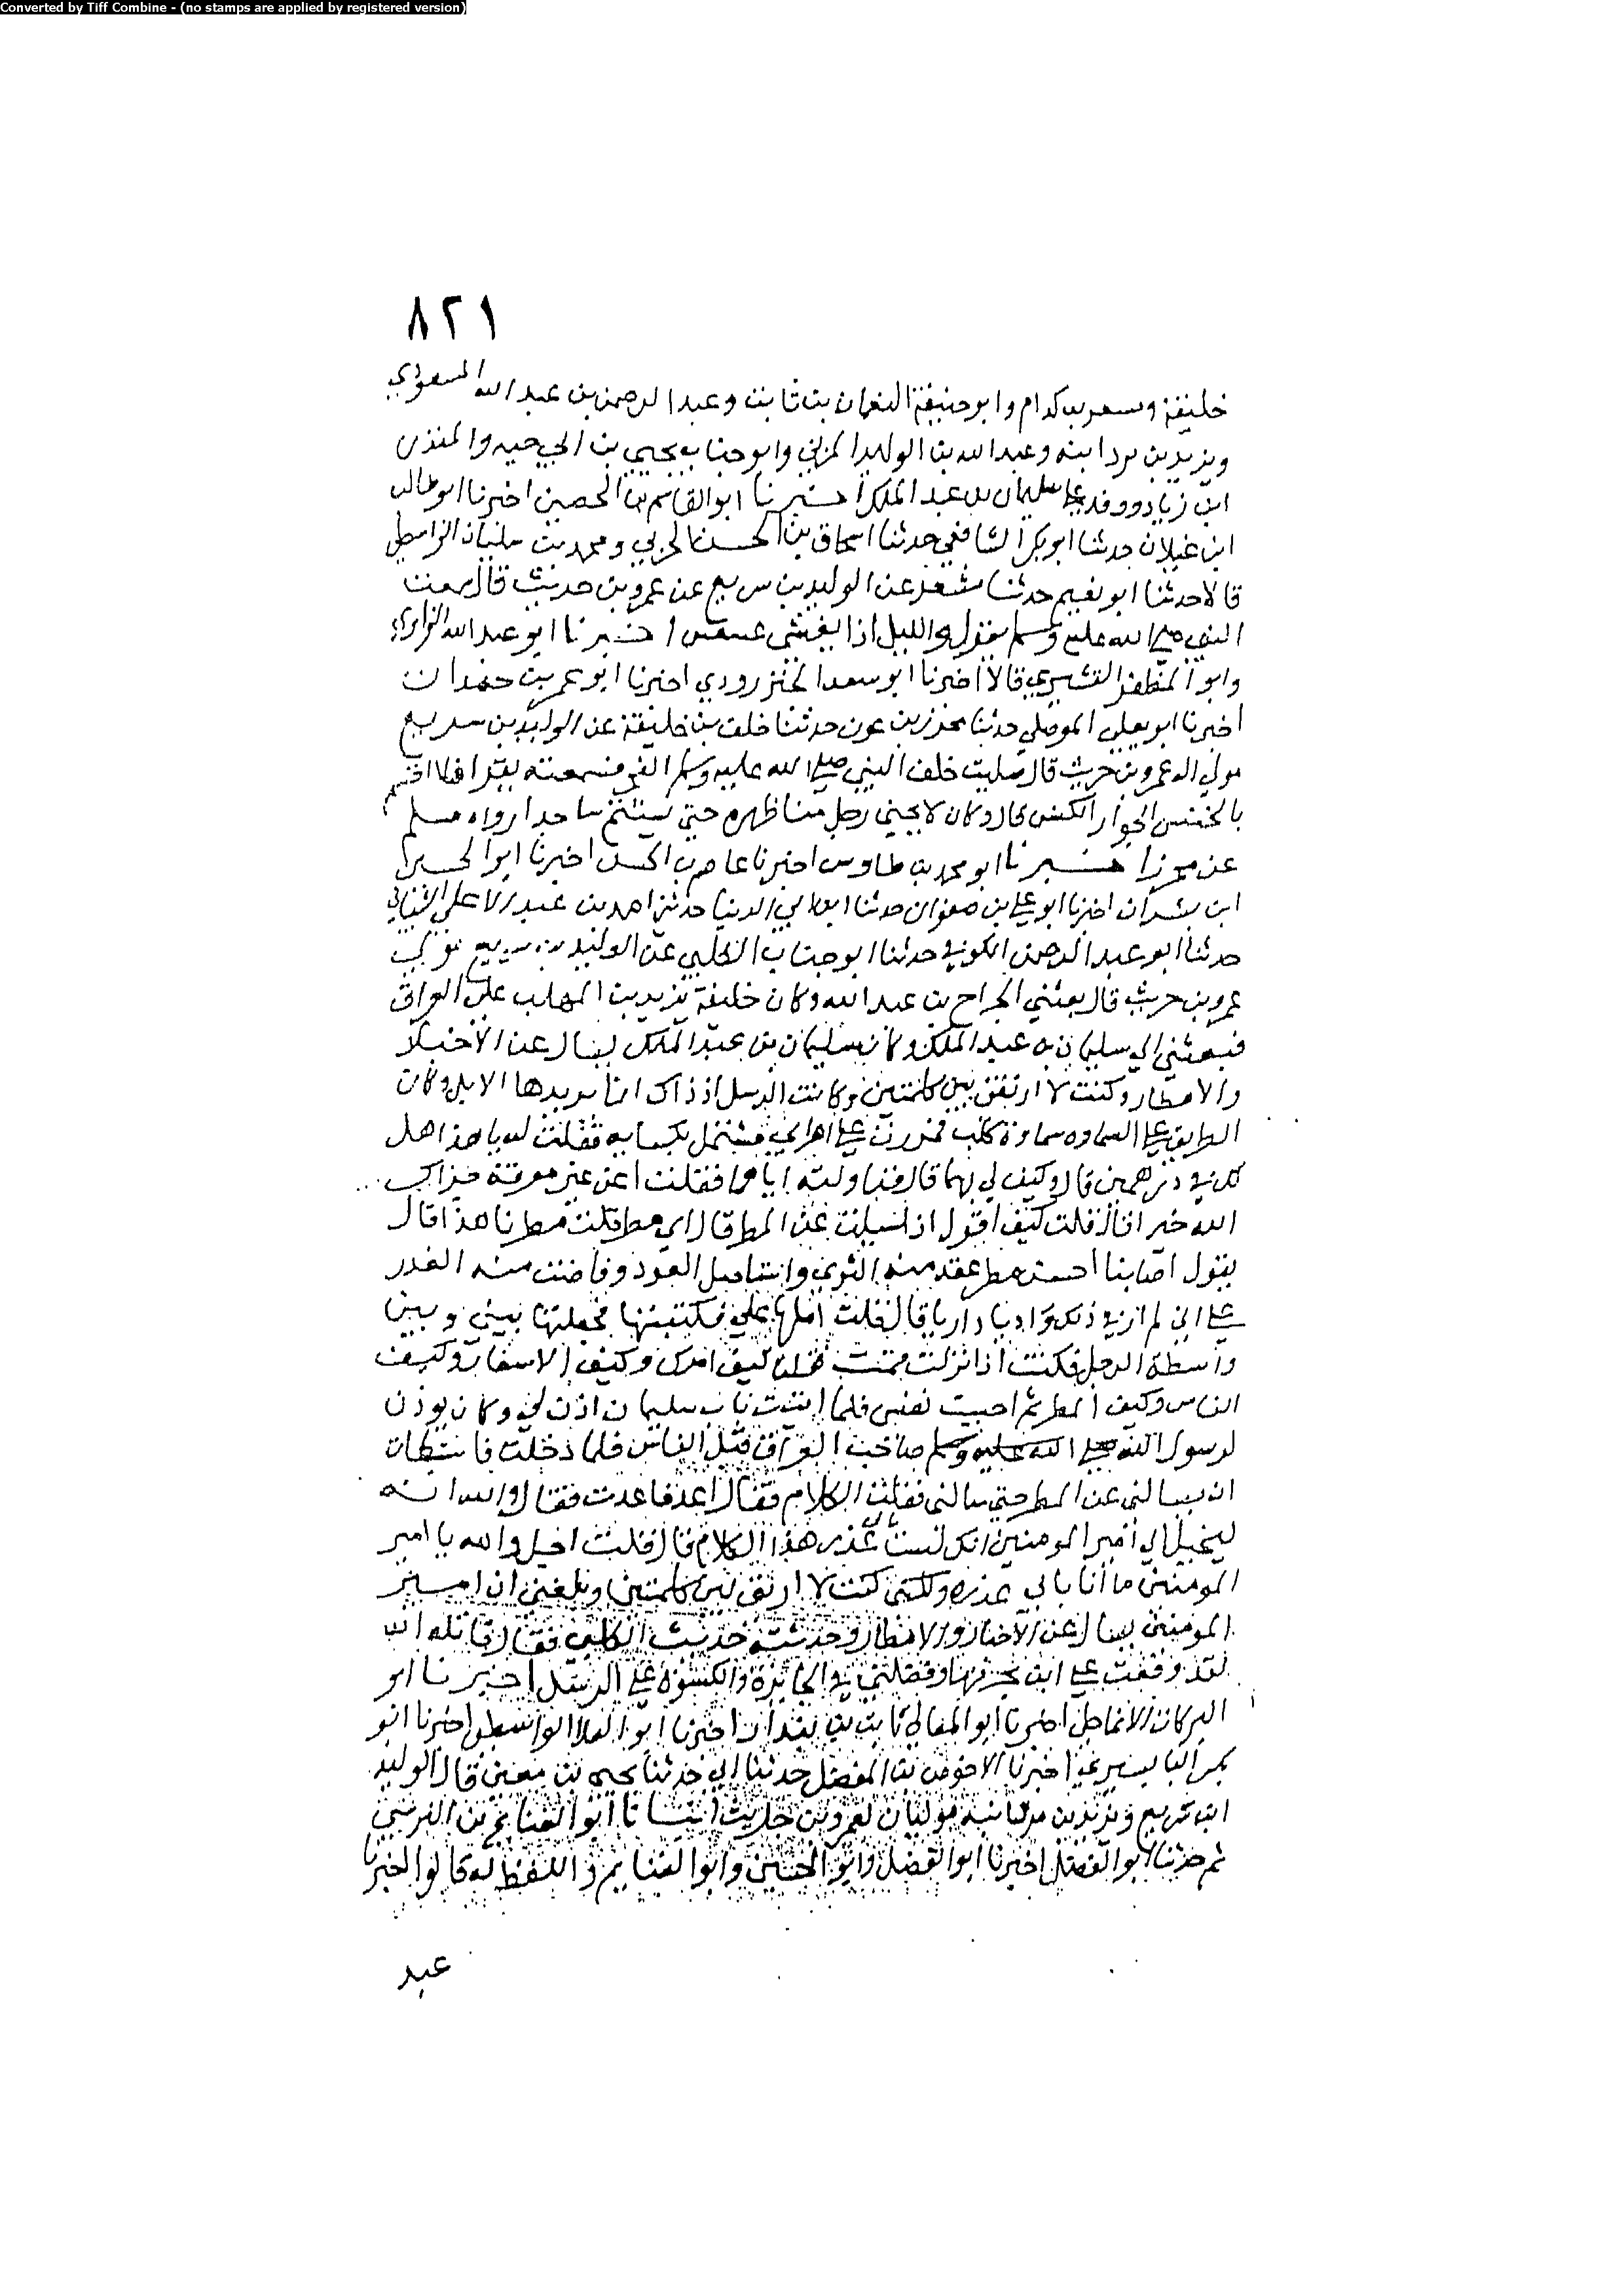 Converted by Tiff Combine - (no stamps are applied by registered version)
٨٢١
خليفة ومسعر بن كدام وابو حنيفة النعمان بن ثابت وعبد الرحمن بن عبد الله المسعودي
ويزيد بن مردانبه وعبد الله بن الوليد المزني وابو جناب يحيى بن ابي حيه والمنذر
ابن زياد ووفد على سليمان بن عبد الملك اخبرنا ابو القاسم بن الحصين اخبرنا ابو طالب
ابن غيلان حدثنا ابو بكر الشافعي حدثنا اسحاق بن الحسن الحربي ومحمد بن سليمان الواسطي
قالا حدثنا ابو نعيم حدثنا مسعر عن الوليد بن سريع عن عمرو بن حديث قال سمعت
النبي صلى الله عليه وسلم يقول والليل اذا عسعس اخبرنا ابو عبد الله الفراوي
وابو المظفر القشيري قالا اخبرنا ابو سعد الجنزرودي اخبرنا ابو عمر بن حمدان
اخبرنا ابو يعلى الموصلي حدثنا محرز بن عون حدثنا خلف بن خليفة عن الوليد بن سريع
مولي ال عمرو بن حريث قال صليت خلف النبي صلى الله عليه وسلم الفجر فسمعته يقرا فلا اقسم
بالخنس الجوار الكنس قال وكان لا يحني رجل منا ظهره حتى يستتم ساجدا رواه مسلم
عن محرز اخبرنا ابو محمد بن طاوس اخبرنا عاصم بن الحسن اخبرنا ابو الحسين
ابن بشران اخبرنا ابو علي بن صفوان حدثنا ابن ابي الدنيا حدثني احمد بن عبد الاعلى الشيباني
حدثنا ابو عبد الرحمن الكوفي حدثنا ابو جناب الكلبي عن الوليد بن سريع مولى
عمرو بن حريث قال بعثني الجراح بن عبد الله وكان خليفة يزيد بن المهلب على العراق
فبعثني الى سليمان بن عبد الملك وكان سليمان بن عبد الملك يسال عن الاخبار
والامطار وكنت لا ارتق بين كلمتين وكانت الرسل اذ ذاك انما بريدها الابل وكان
الطريق على السماوه سماوة كلب فمررت على اعرابي مشتمل بكسايه فقلت له يا هذا هل
لك في درهمين قال وكيف لي بهما قال فناولته اياهما فقلت اعن غير معرفة جزاك
الله خيرا قال قلت كيف اقول اذا سيلت عن المطر قال اي مطر قلت مطرنا هذا قال
يقول اصابنا احسن مطر عقد منه الثرى واستاصل العود وفاضت منه الغدر
على اني لم ار في ذلك واديا داريا قال فقلت املها علي فكتبتها فجعلتها بيني وبين
واسطة الرحل فكنت اذا نزلت قمت فقلت كيف امرك وكيف الاسفار وكيف
الناس وكيف المطر ثم احببت نفسي فلما اتيت باب سليمان اذن لي وكان يوذن
لرسول صاحب العراق قبل الناس فلما دخلت فاستبطات
ان يسالني عن المطر حتى سالني فقلت الكلام فقال اعد فاعدت فقال والله انه
ليخيل الى امير المومنين انك لست بابي عذر هذا الكلام قال فقلت اجل والله يا امير
المومنين ما انا بابي عذره ولكني كنت لا ارتق بين كلمتين وبلغني ان امير
المومنين يسال عن الاخبار والامطار وحدثته حديث الكلبي فقال قاتله الله
لقد وقعت على ابن بجدتها وفضلني في الجايزة والكسوة على الرسل اخبرنا ابو
البركات الانماطي اخبرنا ابو المعالي ثابت بن بندار اخبرنا ابو العلا الواسطي اخبرنا ابو
بكر البابسيري اخبرنا الاحوص بن المفضل حدثنا ابي حدثنا يحيى بن معين قال الوليد
ابن سريع ويزيد بن مردانبه موليان لعمرو بن حريث انبانا ابو الغنايم بن النرسي
ثم حدثنا ابو الفضل اخبرنا ابو الفضل وابو الحسين وابو الغنايم واللفظ له قالوا اخبرنا
عبد